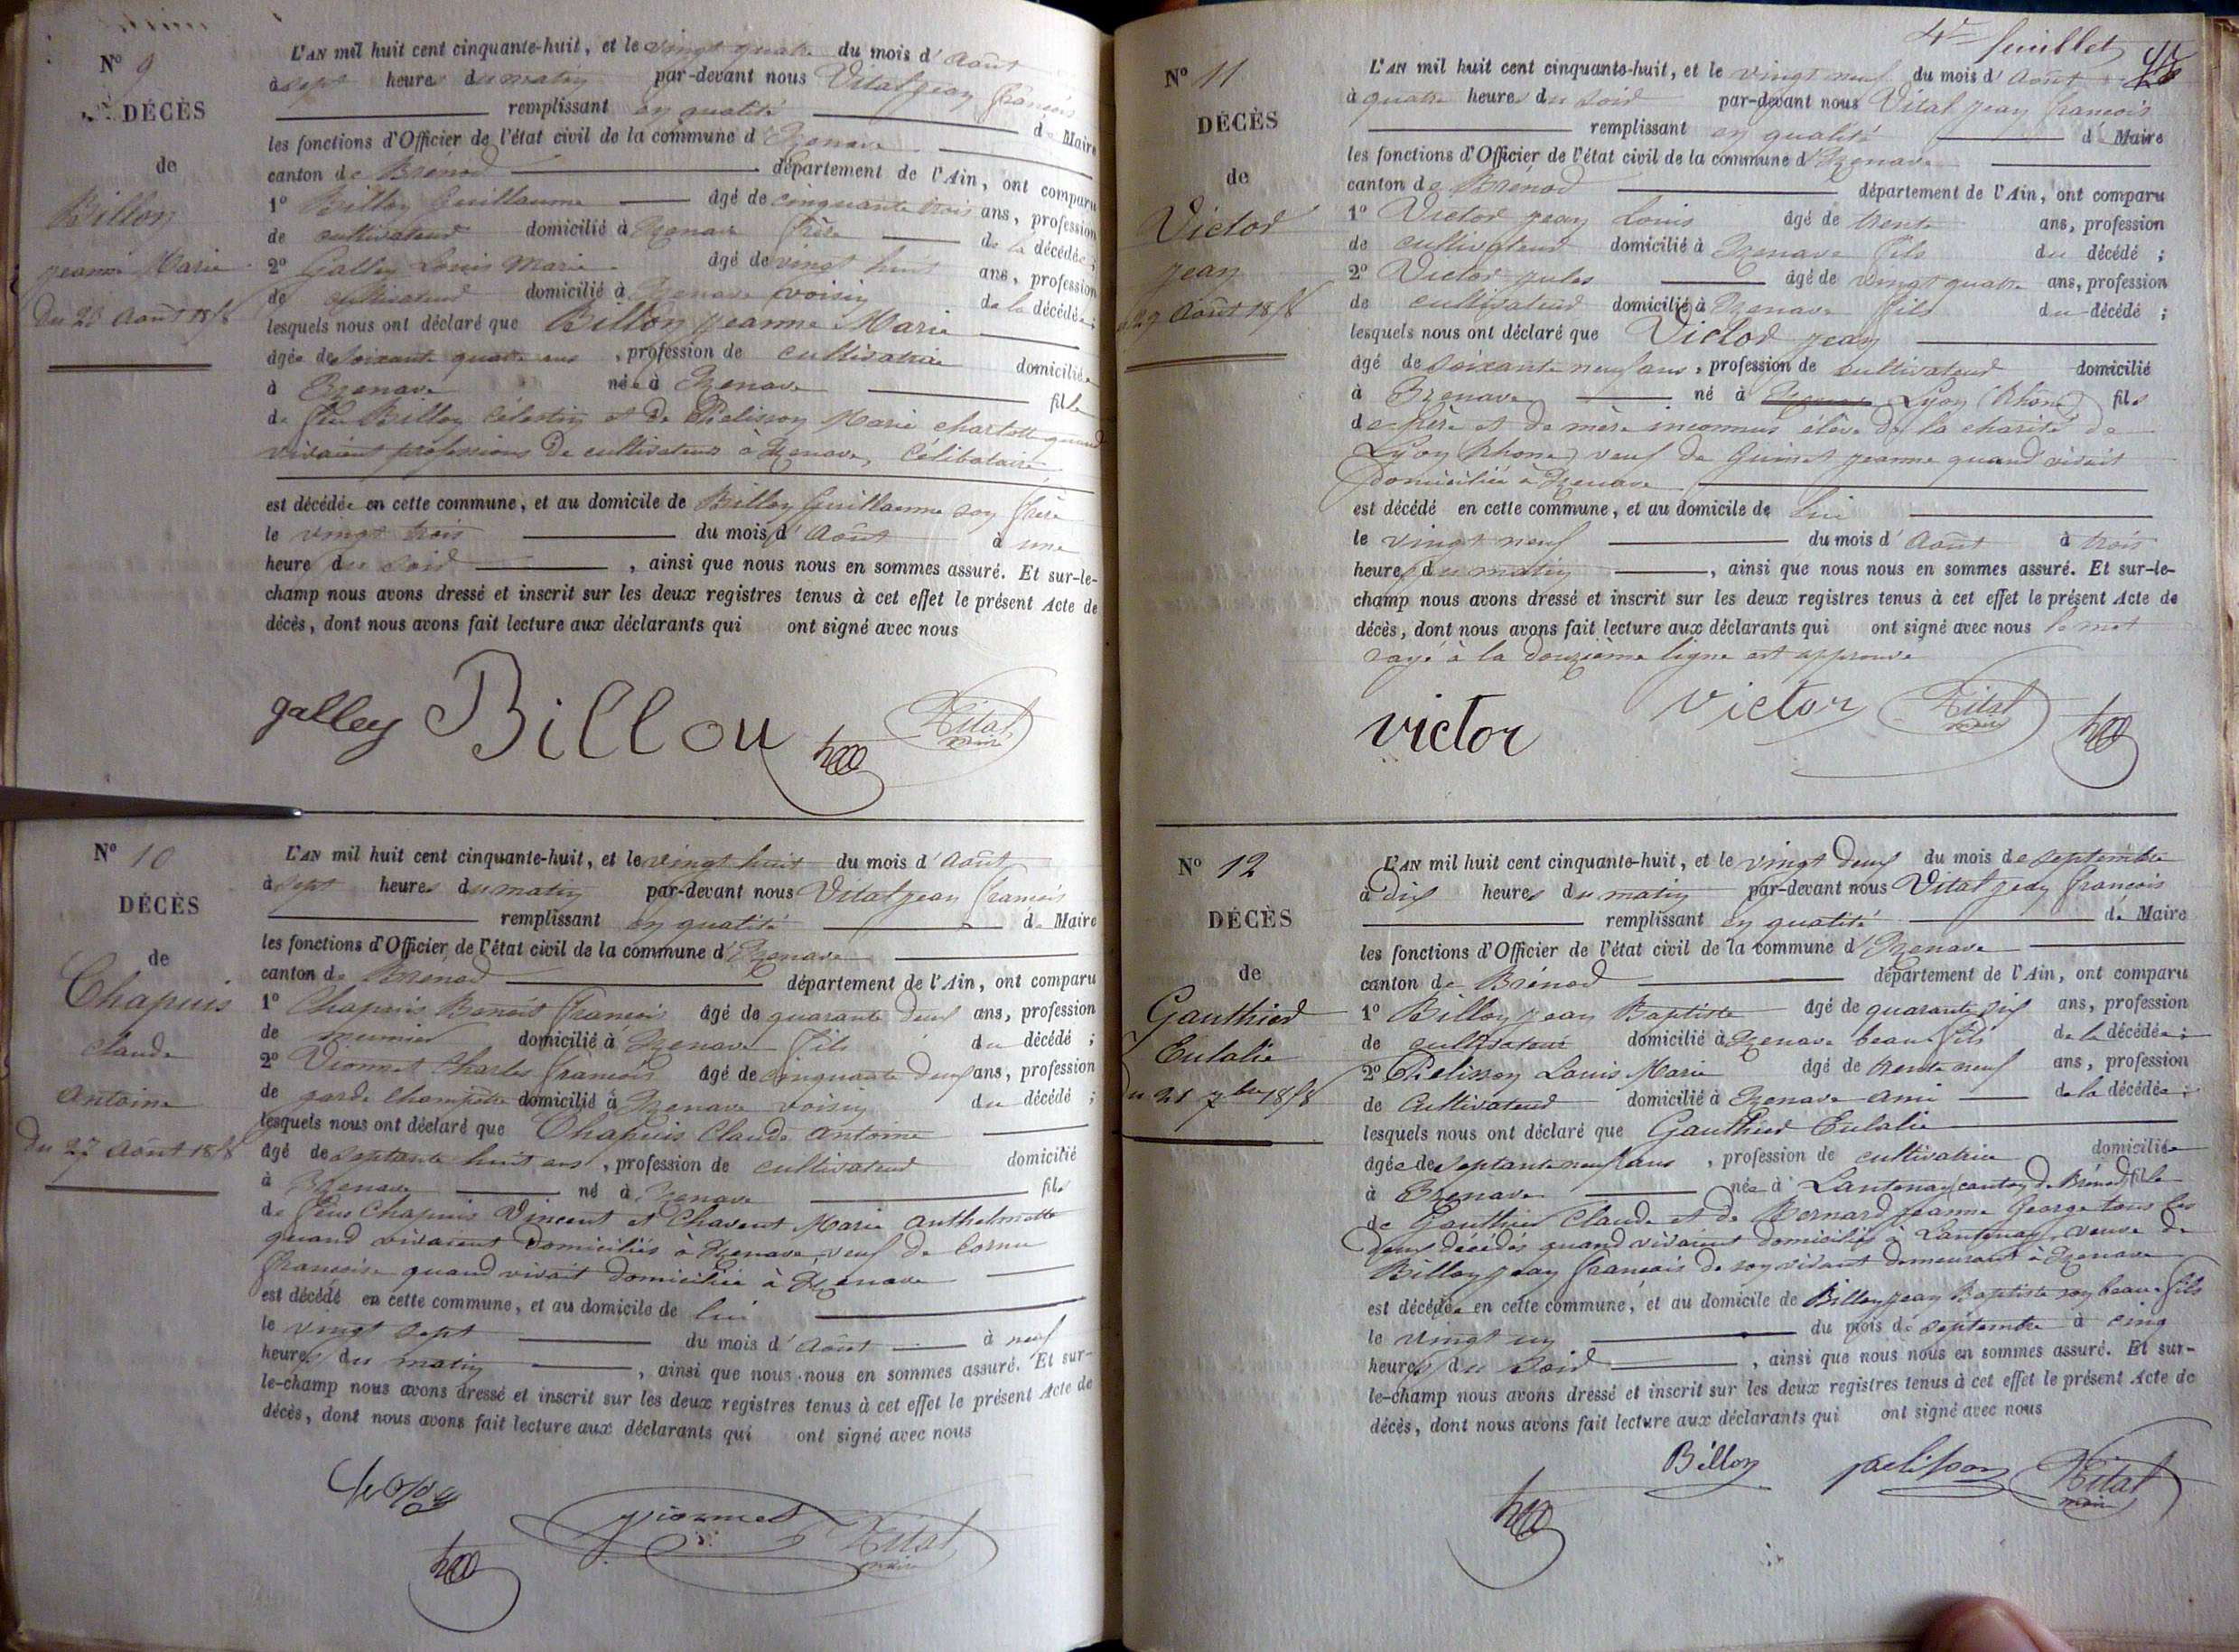 N° 9
DÉCÈS
de
Billon
jeanne Marie
Du 23 Août 1858
L'AN mil huit cent cinquante-huit, et le vingt quatre du mois d' Août
à sept heures du matin par-devant nous Vital jean françois
remplissant en qualité de Maire
les fonctions d'Officier de l'état civil de la commune d' Izenave
canton de Brénod département de l'Ain, ont comparu
1° Billon Guillaume âgé de cinquante trois ans, profession
de cultivateur domicilié à Izenave frère de la décédée ;
2° Galley Louis Marie âgé de vingt huit ans, profession
de cultivateur domicilié à Izenave voisin de la décédée ;
lesquels nous ont déclaré que Billon jeanne Marie
âgée de soixante quatre ans, profession de cultivatrice domiciliée
à Izenave née à Izenave fille
de feu Billon Célestin et de Pélisson Marie charlotte quand
vivaient professions de cultivateurs à Izenave, Célibataire
est décédée en cette commune, et au domicile de Billon Guillaume son frère
le vingt trois du mois d' Août à une
heure du soir, ainsi que nous nous en sommes assuré. Et sur-le-
champ nous avons dressé et inscrit sur les deux registres tenus à cet effet le présent Acte de
décès, dont nous avons fait lecture aux déclarants qui ont signé avec nous
galley Billou Vital
maire
N° 10
DÉCÈS
de
Chapuis
claude
Antoine
Du 27 Août 1858
L'AN mil huit cent cinquante-huit, et le vingt huit du mois d' Août
à sept heures du matin par-devant nous Vital jean françois
remplissant en qualité de Maire
les fonctions d'Officier de l'état civil de la commune d' Izenave
canton de Brénod département de l'Ain, ont comparu
1° Chapuis Benoit françois âgé de quarante deux ans, profession
de meunier domicilié à Izenave fils du décédé ;
2° Vionnet Charles françois âgé de cinquante deux ans, profession
de garde champêtre domicilié à Izenave voisin du décédé ;
lesquels nous ont déclaré que Chapuis Claude Antoine
âgé de septante huit ans, profession de cultivateur domicilié
à Izenave né à Izenave fils
de feue Chapuis Vincent et Chavent Marie Anthelmette
quand vivaient domiciliés à Izenave, veuf de Cornu
françoise quand vivait domiciliée à Izenave
est décédé en cette commune, et au domicile de lui
le vingt sept du mois d' Août à neuf
heures du matin, ainsi que nous nous en sommes assuré. Et sur-
le-champ nous avons dressé et inscrit sur les deux registres tenus à cet effet le présent Acte de
décès, dont nous avons fait lecture aux déclarants qui ont signé avec nous
Vionnet Vital
maire
4e feuillet
N° 11
DÉCÈS
de
Victor
jean
29 Août 1858
L'AN mil huit cent cinquante-huit, et le vingt neuf du mois d' Août
à quatre heures du soir par-devant nous Vital jean françois
remplissant en qualité de Maire
les fonctions d'Officier de l'état civil de la commune d' Izenave
canton de Brénod département de l'Ain, ont comparu
1° Victor jean Louis âgé de trente ans, profession
de cultivateur domicilié à Izenave fils du décédé ;
2° Victor jules âgé de vingt quatre ans, profession
de cultivateur domicilié à Izenave fils du décédé ;
lesquels nous ont déclaré que Victor jean
âgé de soixante neuf ans, profession de cultivateur domicilié
à Izenave né à Lyon (Rhône) fils
de père et de mère inconnus élève de la charité de
Lyon (Rhône) veuf de Guinet jeanne quand vivait
domiciliée à Izenave
est décédé en cette commune, et au domicile de lui
le vingt neuf du mois d' Août à trois
heures du matin, ainsi que nous nous en sommes assuré. Et sur-le-
champ nous avons dressé et inscrit sur les deux registres tenus à cet effet le présent Acte de
décès, dont nous avons fait lecture aux déclarants qui ont signé avec nous le mot
rayé à la douzième ligne est approuvé
victor victor Vital
maire
N° 12
DÉCÈS
de
Gauthier
Eulalie
Du 21 7bre 1858
L'AN mil huit cent cinquante-huit, et le vingt deux du mois de septembre
à dix heures du matin par-devant nous Vital jean françois
remplissant en qualité de Maire
les fonctions d'Officier de l'état civil de la commune d' Izenave
canton de Brénod département de l'Ain, ont comparu
1° Billon jean Baptiste âgé de quarante six ans, profession
de cultivateur domicilié à Izenave beau fils de la décédée ;
2° Pélisson Louis Marie âgé de trente neuf ans, profession
de Cultivateur domicilié à Izenave ami de la décédée ;
lesquels nous ont déclaré que Gauthier Eulalie
âgée de septante neuf ans, profession de cultivatrice domiciliée
à Izenave née à Lantenay canton de Brénod fille
de Gauthier Claude et de Bernard jeanne George tous les
deux décédés quand vivaient domiciliés à Lantenay, veuve de
Billon jean françois de son vivant demeurant à Izenave
est décédée en cette commune, et au domicile de Billon jean Baptiste son beau fils
le vingt un du mois de septembre à cinq
heures du soir, ainsi que nous nous en sommes assuré. Et sur-
le-champ nous avons dressé et inscrit sur les deux registres tenus à cet effet le présent Acte de
décès, dont nous avons fait lecture aux déclarants qui ont signé avec nous
Billon pelisson Vital
maire